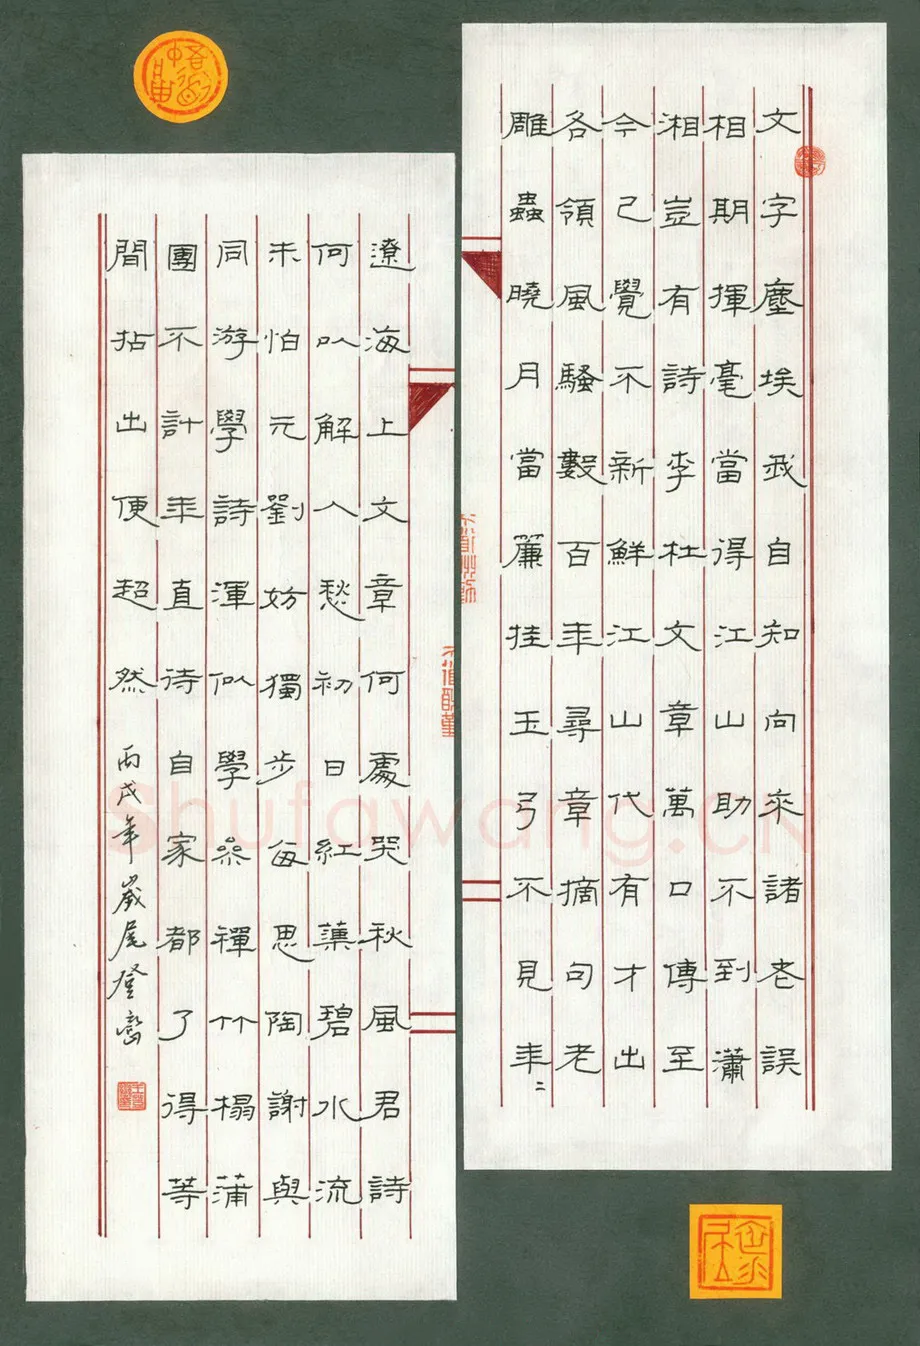 文字塵埃我自知向來諸老誤
相期揮毫當得江山助不到瀟
湘豈有詩李杜文章萬口傳至
今已覺不新鮮江山代有才出
各領風騷數百年尋章摘句老
雕蟲曉月當簾挂玉弓不見年二
遼海上文章何處哭秋風君詩
何以解人愁初日紅蕖碧水流
未怕元劉妨獨步每思陶謝與
同游學詩渾似學參禪竹榻蒲
團不計年直待自家都了得等
間拈出便超然 丙戌年歲尾登巒
Shufawang.CN